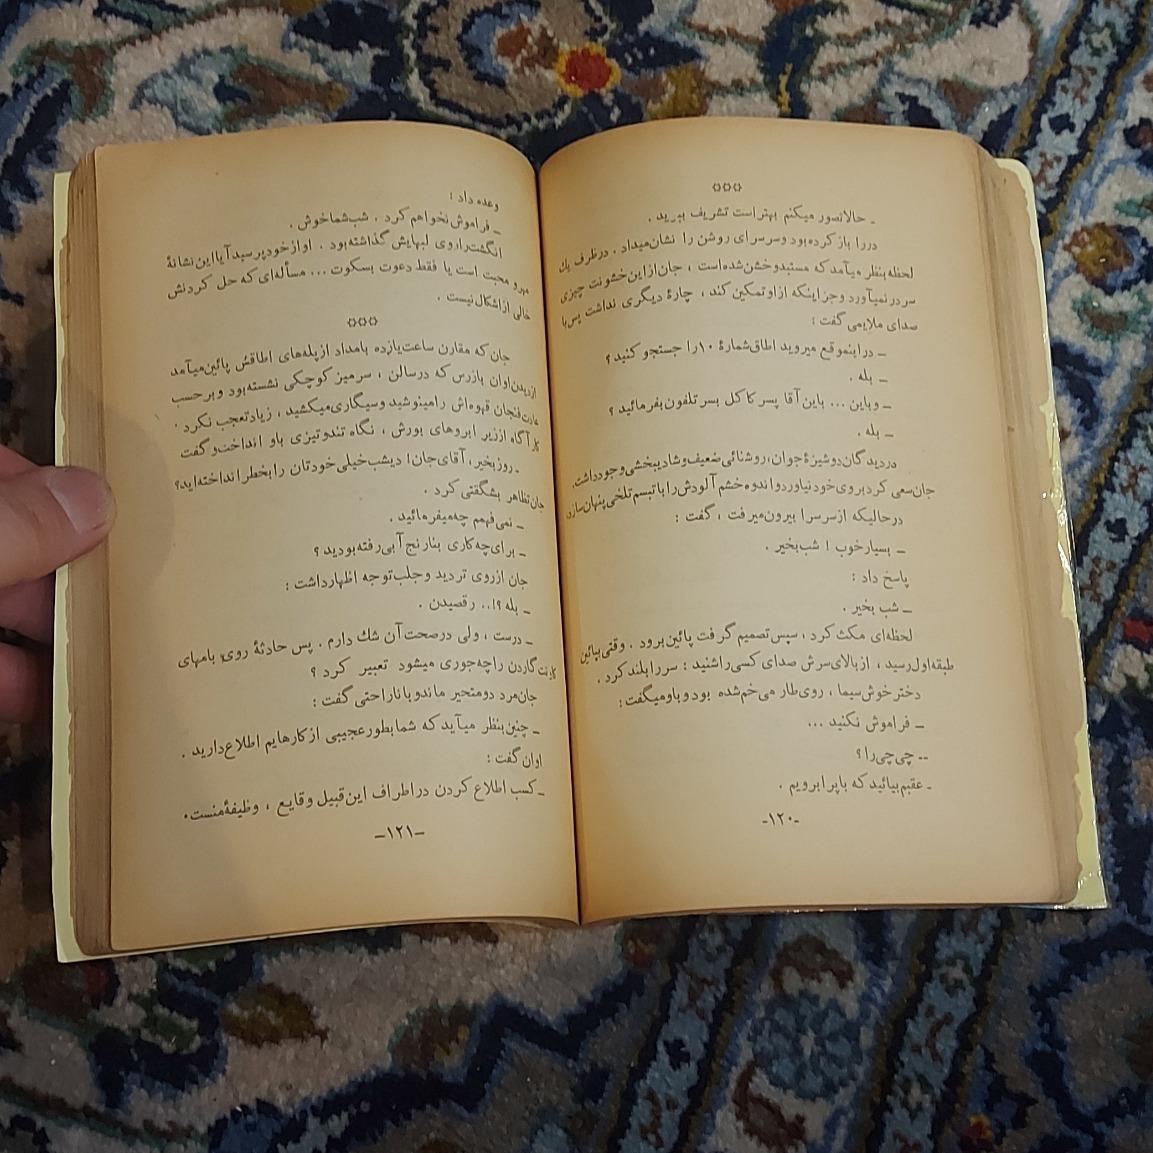 ۞۞۞
ـ حالا تصور میکنم بهتر است تشریف ببرید .
در را باز کرده بود و سرسرای روشن را نشان میداد . در ظرف یك
لحظه بنظر میآمد که مستبد و خشن شده است ، جان از این خشونت چیزی
سر در نمیآورد و جز اینکه از او تمکین کند ، چارهٔ دیگری نداشت پس با
صدای ملایمی گفت :
ـ در اینموقع میروید اطاق شمارهٔ ۱۰ را جستجو کنید ؟
ـ بله .
ـ و باین ... باین آقا پسر کاکل بسر تلفون بفرمائید ؟
ـ بله .
در دیدگان دوشیزهٔ جوان ، روشنائی ضعیف و شادیبخشی وجود داشت.
جان سعی کرد بروی خود نیاورد و اندوه خشم آلودش را با تبسم تلخی پنهان سازد
در حالیکه از سرسرا بیرون میرفت ، گفت :
ـ بسیار خوب ! شب بخیر .
پاسخ داد :
ـ شب بخیر .
لحظه‌ای مکث کرد ، سپس تصمیم گرفت پائین برود . وقتی بپائین
طبقه اول رسید ، از بالای سرش صدای کسی را شنید : سر را بلند کرد .
دختر خوش سیما ، روی طارمی خم شده بود و باو میگفت :
ـ فراموش نکنید ...
ـ چی چی را ؟
ـ عقبم بیائید که باپرا برویم .
-۱۲۰-
وعده داد :
ـ فراموش نخواهم کرد . شب شما خوش .
انگشت را روی لبهایش گذاشته بود . او از خود پرسید آیا این نشانهٔ
مهر و محبت است یا فقط دعوت بسکوت ... مسأله‌ای که حل کردنش
خالی از اشکال نیست .
۞۞۞
جان که مقارن ساعت یازده بامداد از پله‌های اطاقش پائین میآمد
از دیدن اوان بازرس که در سالن ، سر میز کوچکی نشسته بود و بر حسب
عادت فنجان قهوه‌اش را مینوشید و سیگاری میکشید ، زیاد تعجب نکرد .
کارآگاه از زیر ابروهای بورش ، نگاه تند و تیزی باو انداخت و گفت
ـ روز بخیر ، آقای جان ! دیشب خیلی خودتان را بخطر انداخته‌اید؟
جان تظاهر بشگفتی کرد .
ـ نمی فهمم چه میفرمائید .
ـ برای چه کاری بنارنج آبی رفته بودید ؟
جان از روی تردید و جلب توجه اظهار داشت :
ـ بله ؟!.. رقصیدن .
ـ درست ، ولی در صحت آن شك دارم . پس حادثهٔ روی بامهای
گاردن را چه جوری میشود تعبیر کرد ؟
جان مرد دو متحیر ماند و با ناراحتی گفت :
ـ چنین بنظر میآید که شما بطور عجیبی از کارهایم اطلاع دارید .
اوان گفت :
ـ کسب اطلاع کردن در اطراف این قبیل وقایع ، وظیفهٔ منست.
-۱۲۱-